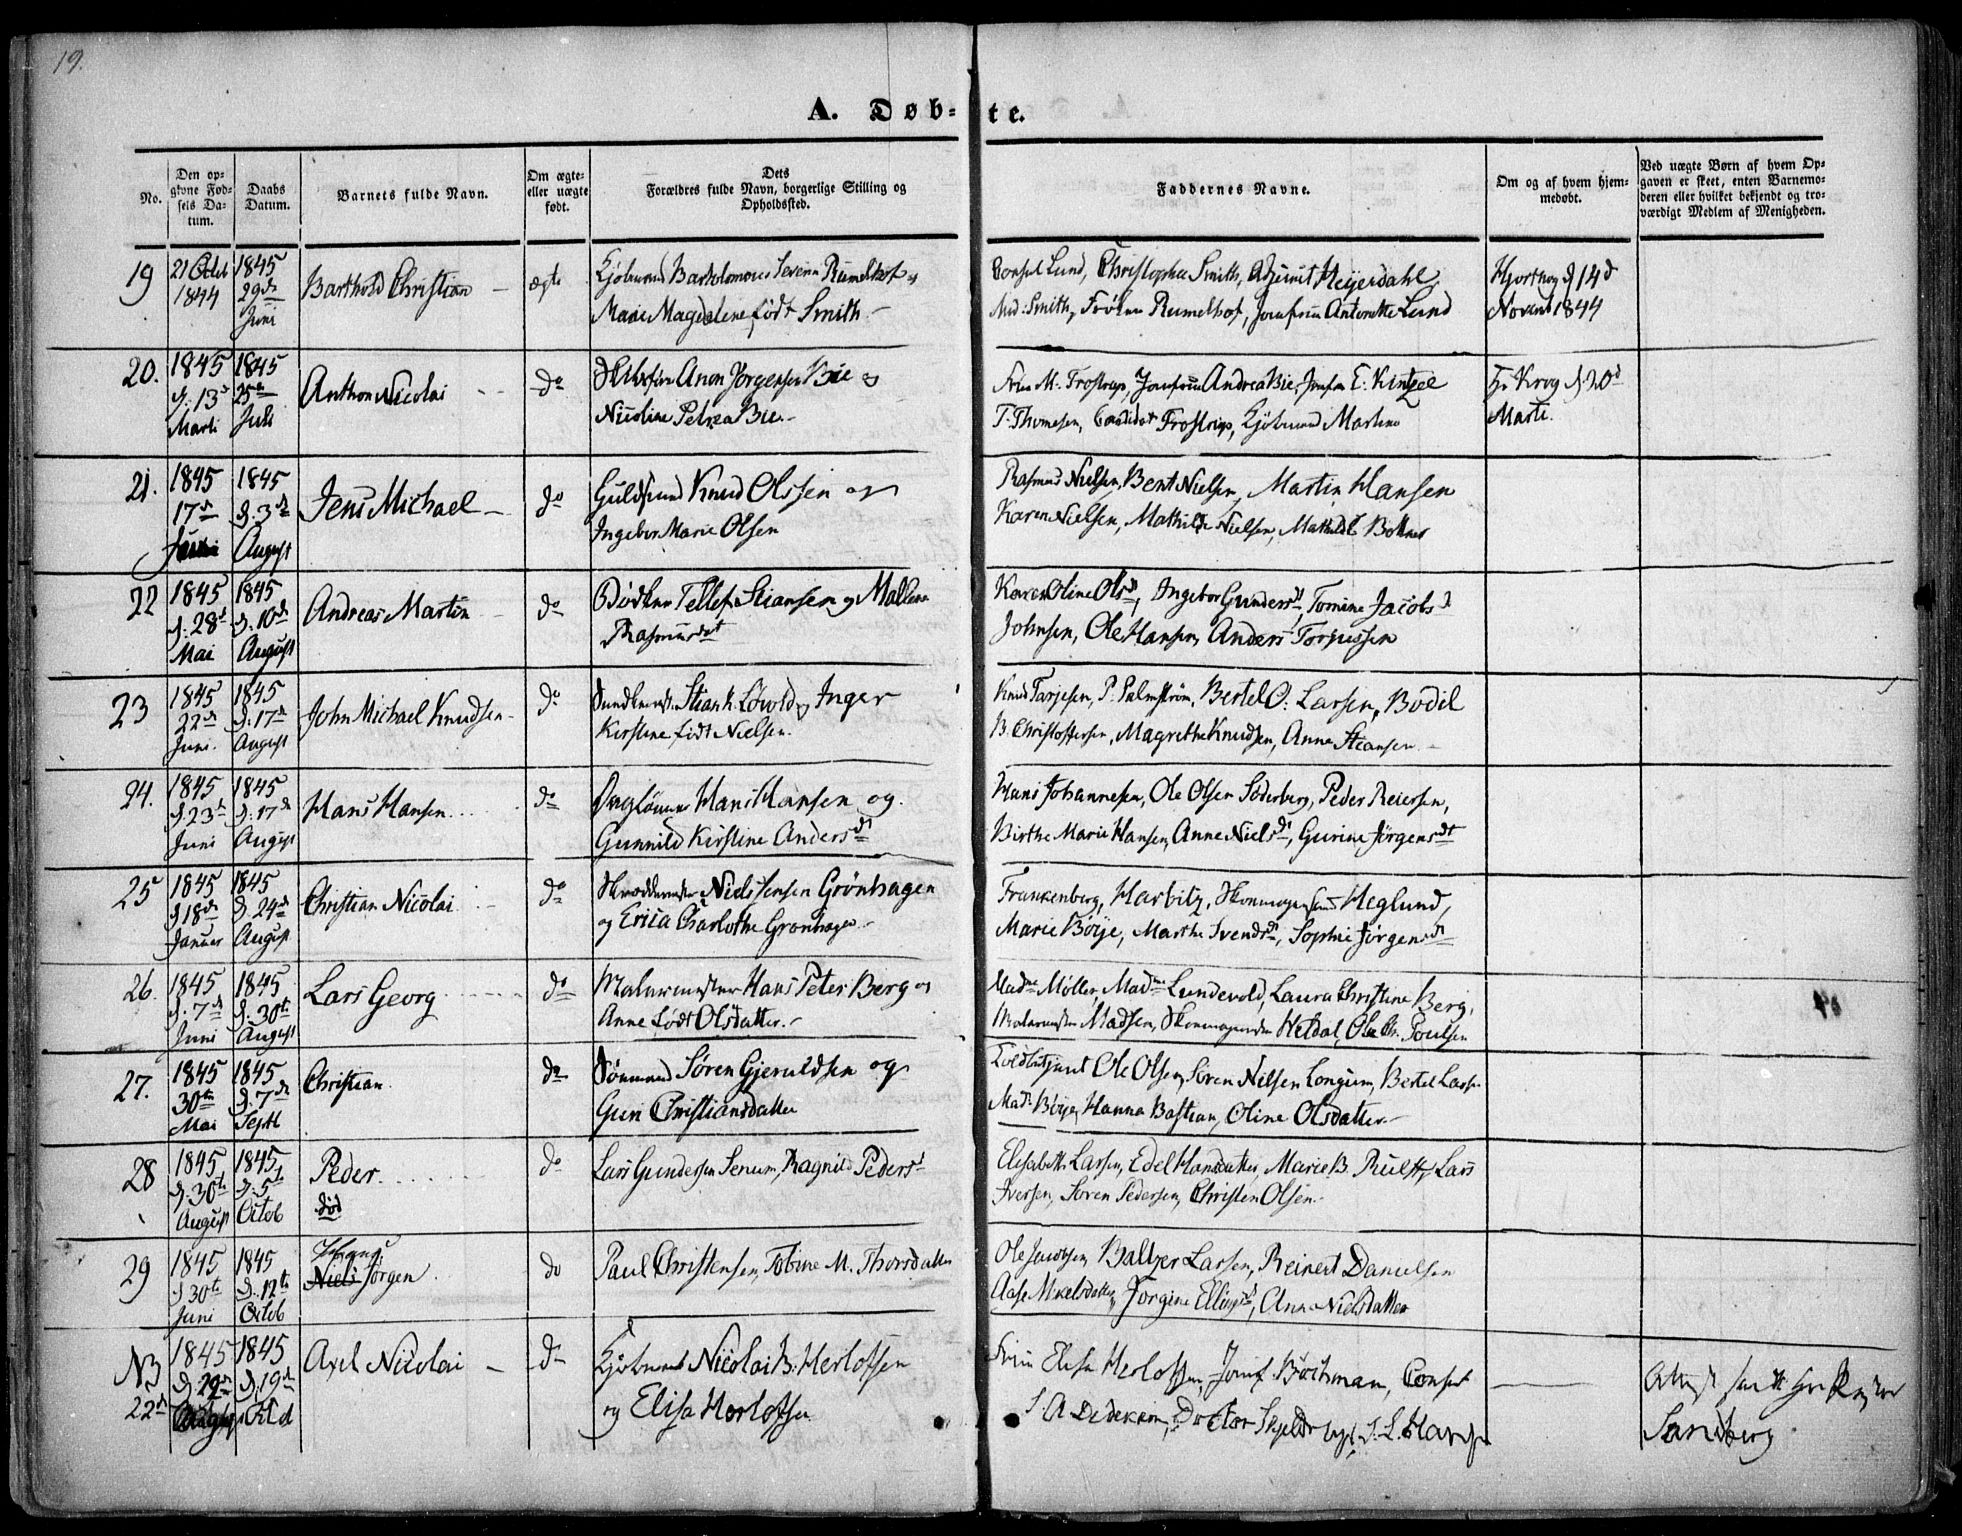 19.
A. Døb-te.
No.
Den op-
givne Fød-
sels Da-
tum.
Daabs
Datum.
Barnets fulde Navn.
Om ægte
eller uægte
født.
Dets
Forældres fulde Navn, borgerlige Stilling og
Opholdssted.
Faddernes Navne.
Om og af hvem hjem-
medøbt.
Ved uægte Børn af hvem Op-
gaven er skeet, enten Barnemo-
deren eller hvilket bekjendt og tro-
værdigt Medlem af Menigheden.
19
21 Octob
1844
1845
29de
Juni
Barthold Christian
ægte
Kjøbmand Bartolomeus Severin Rumelhof og
Marie Magdalene født Smith
Consul Lund, Christopher Smith, Adjunct Heyerdahl
Mad. Smith, Frøken Rumelhof, Jomfru Antonette Lund
Hjorthog d 14d
Novemb 1844
20.
1845
d. 13d
Marti
1845
25de
Juli
Anthon Nicolai
do
Skibsfører Anon Jørgensen Bie og
Nicoline Petrea Bie
Frue M. Frostrup, Jomfru Andrea Bie, Jomfru E. Kintzel
T. Thomesen, Candidat Frostrup, Kjøbmand Martens
Hr Krog d 20d
Marti.
21.
1845
17de
Juni
1845
d. 3de
August
Jens Michael
do
Guldsmed Knud Olssen og
Ingebor Marie Olsen
Rasmus Nielsen, Bent Nielsen, Martin Hansen
Karen Nielsen, Mathilde Nielsen, Mathilde Bottner
22
1845
d. 28d
Mai
1845
d. 10de
August
Andreas Martin
do
Bødker Tellef Stiansen og Mallene
Rasmusdt
Karen Oline Olsd, Ingebor Gundersd, Tomine Jacobsd
Johnsen, Ole Hansen, Anders Torjussen
23
1845
22de
Juni.
1845
d. 17de
August
John Michael Knudsen
do
Stian K. Løvold og Inger
Kirstine født Nielsen.
Knud Tarjesen, P. Palmstrøm, Bertel O. Larsen, Bodil
B. Christoffersen, Magrethe Knudsen, Anne Stiansen
24.
1845
d. 23d
Juni
1845
d. 17de
August
Hans Hansen
do
Daglønner Hans Hansen og
Gunnild Kirstine Andersdt
Hans Johannesen, Ole Olsen Söderberg, Peder Reiersen,
Birthe Marie Hansen, Anne Nielsdt, Gurine Jørgensdt
25
1845
d 18de
Januar
1845
d. 24de
August
Christian Nicolai
do
Skræddermester Niels Jensen Grönhagen
og Erica Charlothe Grønhagen
Frankenberg, Harbitz, Skomager Heglund,
Marie Böije, Marthe Svendsdt, Sophie Jørgensdt
26.
1845
d. 7de
Juni
1845
d. 30te
August
Lars Georg
do
Malermester Hans Peter Berg og
Anne født Olsdatter.
Madme Møller, Madme Lundevold, Laura Christine Berg,
Malermester Madsen, Skomagermester Heldal, Ole Chr. Poulsen
27.
1845
30te
Mai
1845
d. 7de
Septb
Christian
do
Sømand Søren Gjeruldsen og
Guri Christiansdatter
Toldbetjent Ole Olsen, Søren Nilsen Longum, Bertel Larsen
Mad. Böije, Hanna Bastian, Oline Olsdatter
28
1845
d. 30te
August
1845
d. 5te
Octob
Peder
død
do
Lars Gundersen Senum, Ragnild Pedersd
Elisabeth Larsen, Edel Hansdatter, Marie B. Rulff, Lars
Iversen, Søren Pedersen, Christen Olsen.
29
1845
d 30te
Juni
1845
d. 12te
Octob
Hans
Niels Jørgen
do
Paul Christensen, Tobine M. Thorsdatter
Ole Jacobsen, Baltzer Larsen, Reinert Danielsen
Aase Mikelsdatter, Jorgine Ellingsd, Anne Nielsdatter
NB
22de
1845
d. 22de
August
1845
d. 19de
Octob
Axel Nicolai
do
Kjøbmand Nicolai B. Herlofsen
og Elisa Herlofsen
Frue Elisa Herlofsen, Jomf Böchman, Consul
S. A Dedekam, Doctor
Sandberg